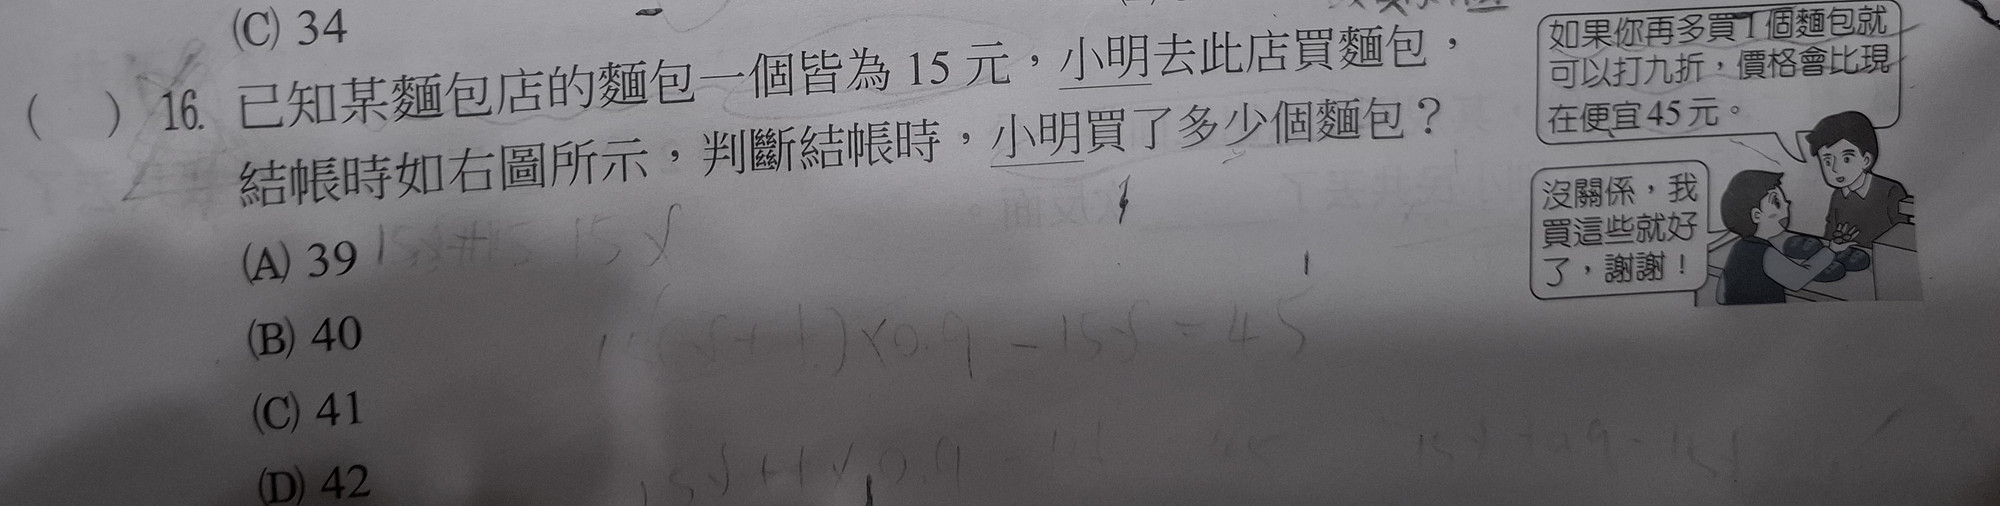 (C) 34
( ) 16. 已知某麵包店的麵包一個皆為 15 元，小明去此店買麵包，
結帳時如右圖所示，判斷結帳時，小明買了多少個麵包？
(A) 39
(B) 40
(C) 41
(D) 42
如果你再多買1個麵包就
可以打九折，價格會比現
在便宜45元。
沒關係，我
買這些就好
了，謝謝！